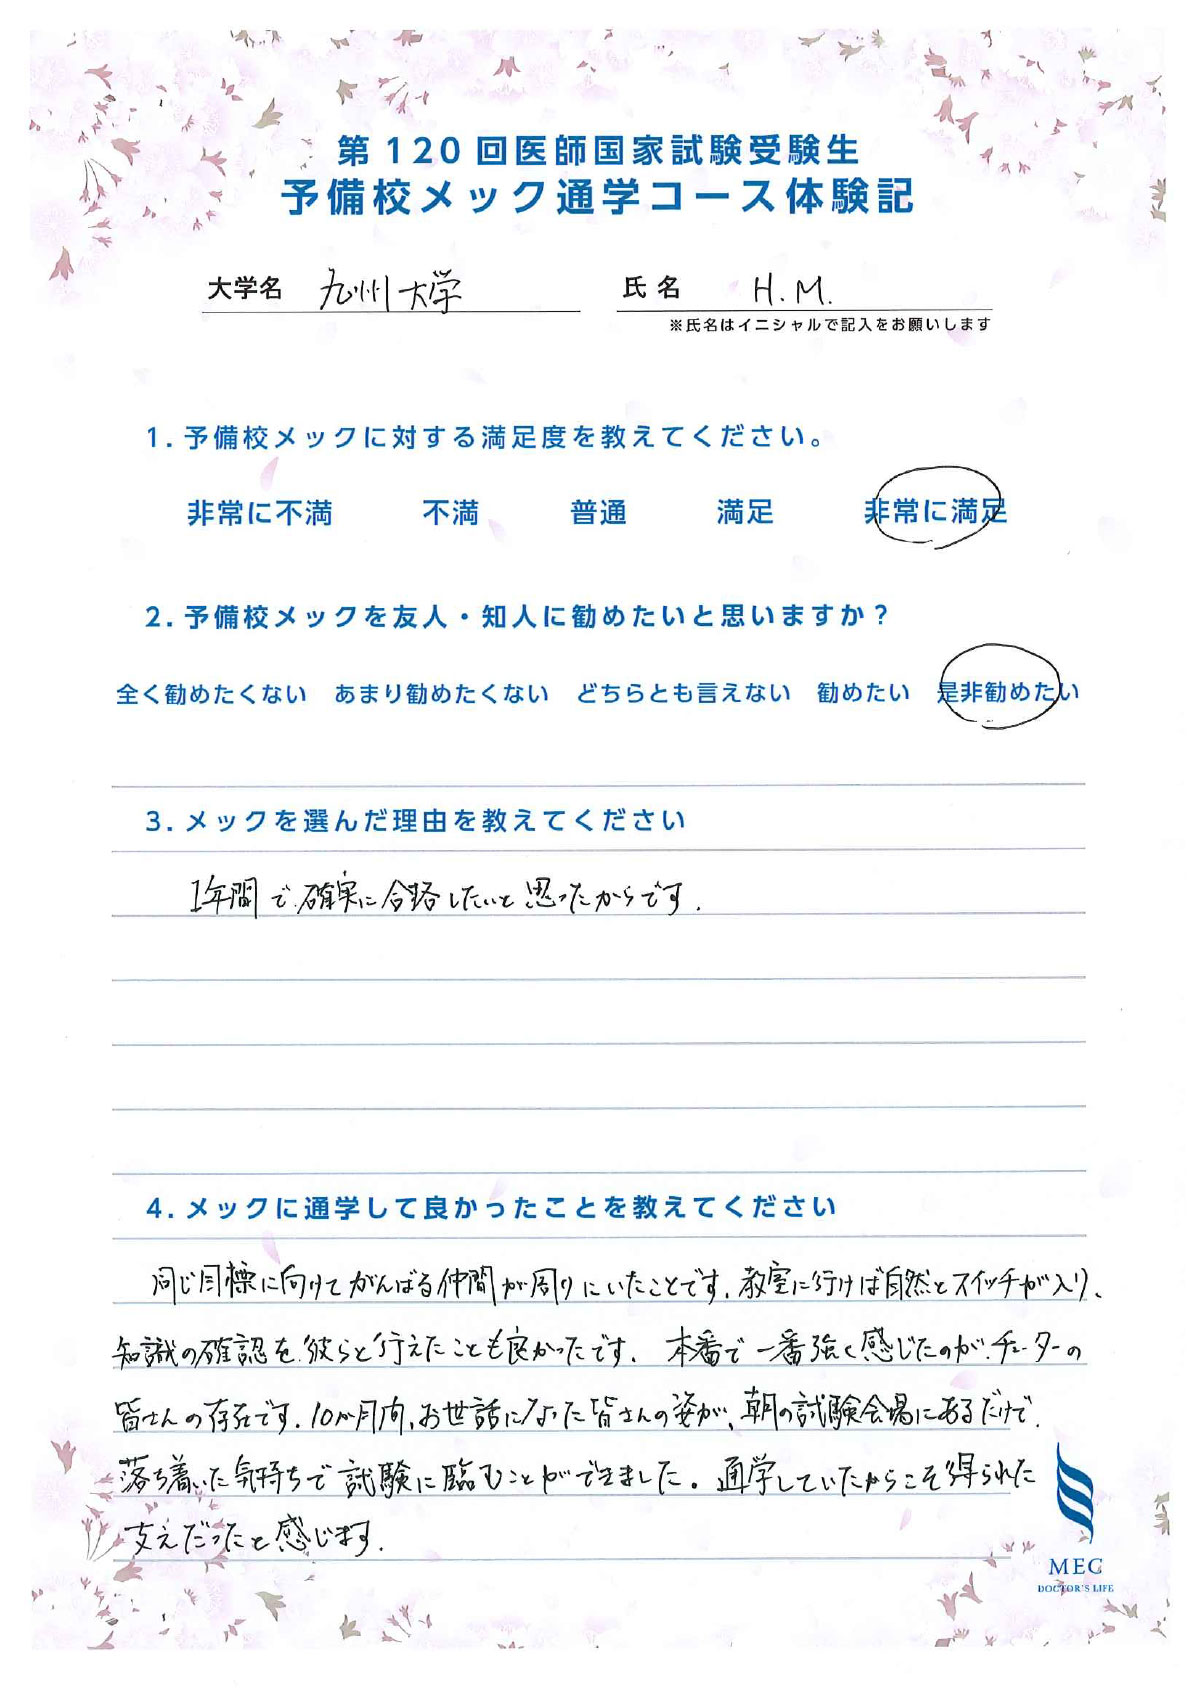 第120回医師国家試験受験生
予備校メック通学コース体験記
大学名 九州大学 氏名 H.M.
※氏名はイニシャルで記入をお願いします
1.予備校メックに対する満足度を教えてください。
非常に不満 不満 普通 満足 非常に満足
2.予備校メックを友人・知人に勧めたいと思いますか？
全く勧めたくない あまり勧めたくない どちらとも言えない 勧めたい 是非勧めたい
3.メックを選んだ理由を教えてください
1年間で確実に合格したいと思ったからです.
4.メックに通学して良かったことを教えてください
同じ目標に向けてがんばる仲間が周りにいたことです.教室に行けば自然とスイッチが入り、
知識の確認を彼らと行えたことも良かったです.本番で一番強く感じたのが、チューターの
皆さんの存在です.10か月間、お世話になった皆さんの姿が、朝の試験会場にあるだけで、
落ち着いた気持ちで試験に臨むことができました。通学していたからこそ得られた
支えだったと感じます.
MEC
DOCTOR'S LIFE